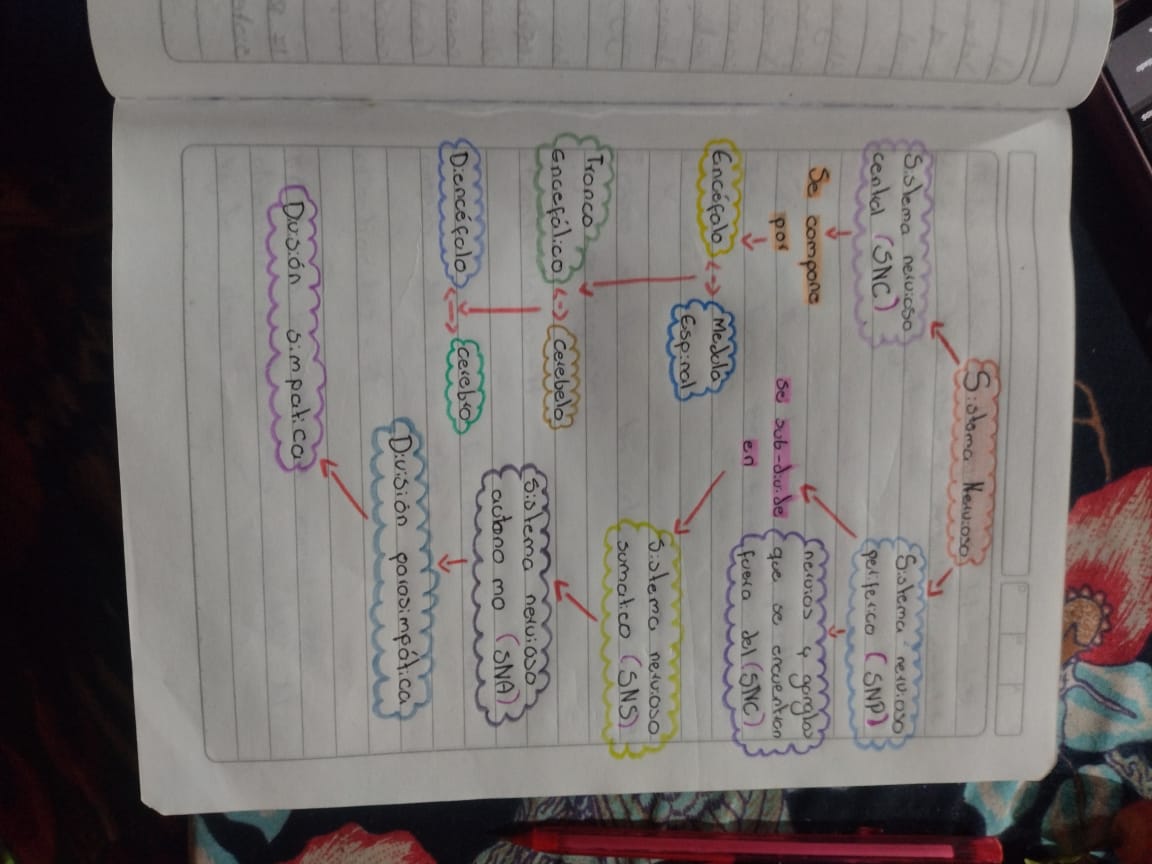 Sistema Nervioso
Sistema nervioso
central (SNC)
Sistema nervioso
periferico (SNP)
Se compone
por
nervios y ganglios
que se encuentran
fuera del (SNC)
se sub-divide
en
Encéfalo
Medula
Espinal
Tronco
Encefálico
Cerebelo
Sistema nervioso
somatico (SNS)
Diencéfalo
cerebro
Sistema nervioso
autono mo (SNA)
División parasimpática
División simpatica